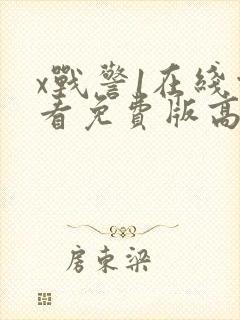 x戰警1在綫
看免費版高
房東梁